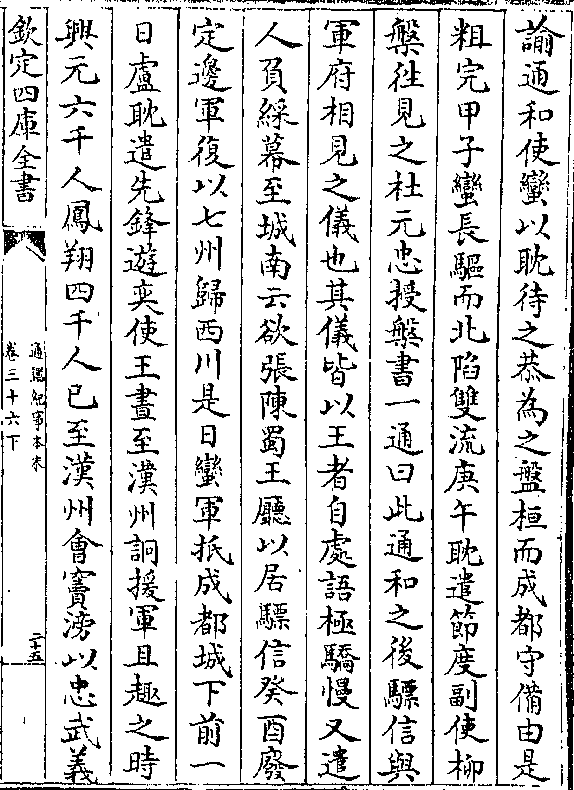 諭通和使蠻以耽待之恭為之盤桓而成都守備由是
粗完甲子蠻長驅而北陷雙流庚午耽遣節度副使柳
槃徃見之杜元忠授槃書一通曰此通和之後驃信與
軍府相見之儀也其儀皆以王者自處語極驕慢又遣
人負綵幕至城南云欲張陳蜀王廳以居驃信癸酉廢
定邊軍復以七州歸西川是日蠻軍抵成都城下前一
日盧耽遣先鋒遊奕使王晝至漢州詗援軍且趣之時
興元六千人鳳翔四千人已至漢州會竇滂以忠武義
欽定四庫全書
通鑑紀事本末
卷三十六下
二十五